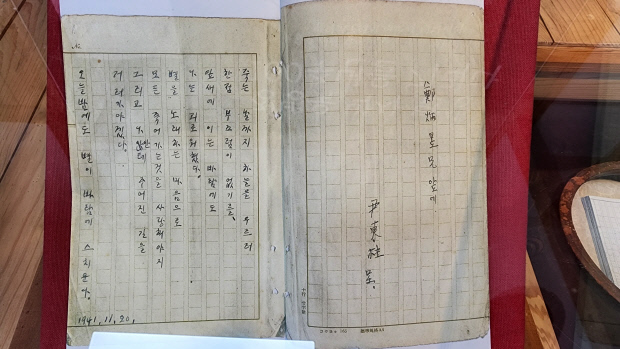 鄭炳昱 兄 앞에
尹東柱 呈.
죽는 날까지 하늘을 우르러
한점 부끄럼이 없기를,
잎새에 이는 바람에도
나는 괴로워했다.
별을 노래하는 마음으로
모든 죽어가는것을 사랑해야지
그리고 나안테 주어진 길을
거러가야겠다.
오늘밤에도 별이 바람에 스치운다.
1941.11.20.